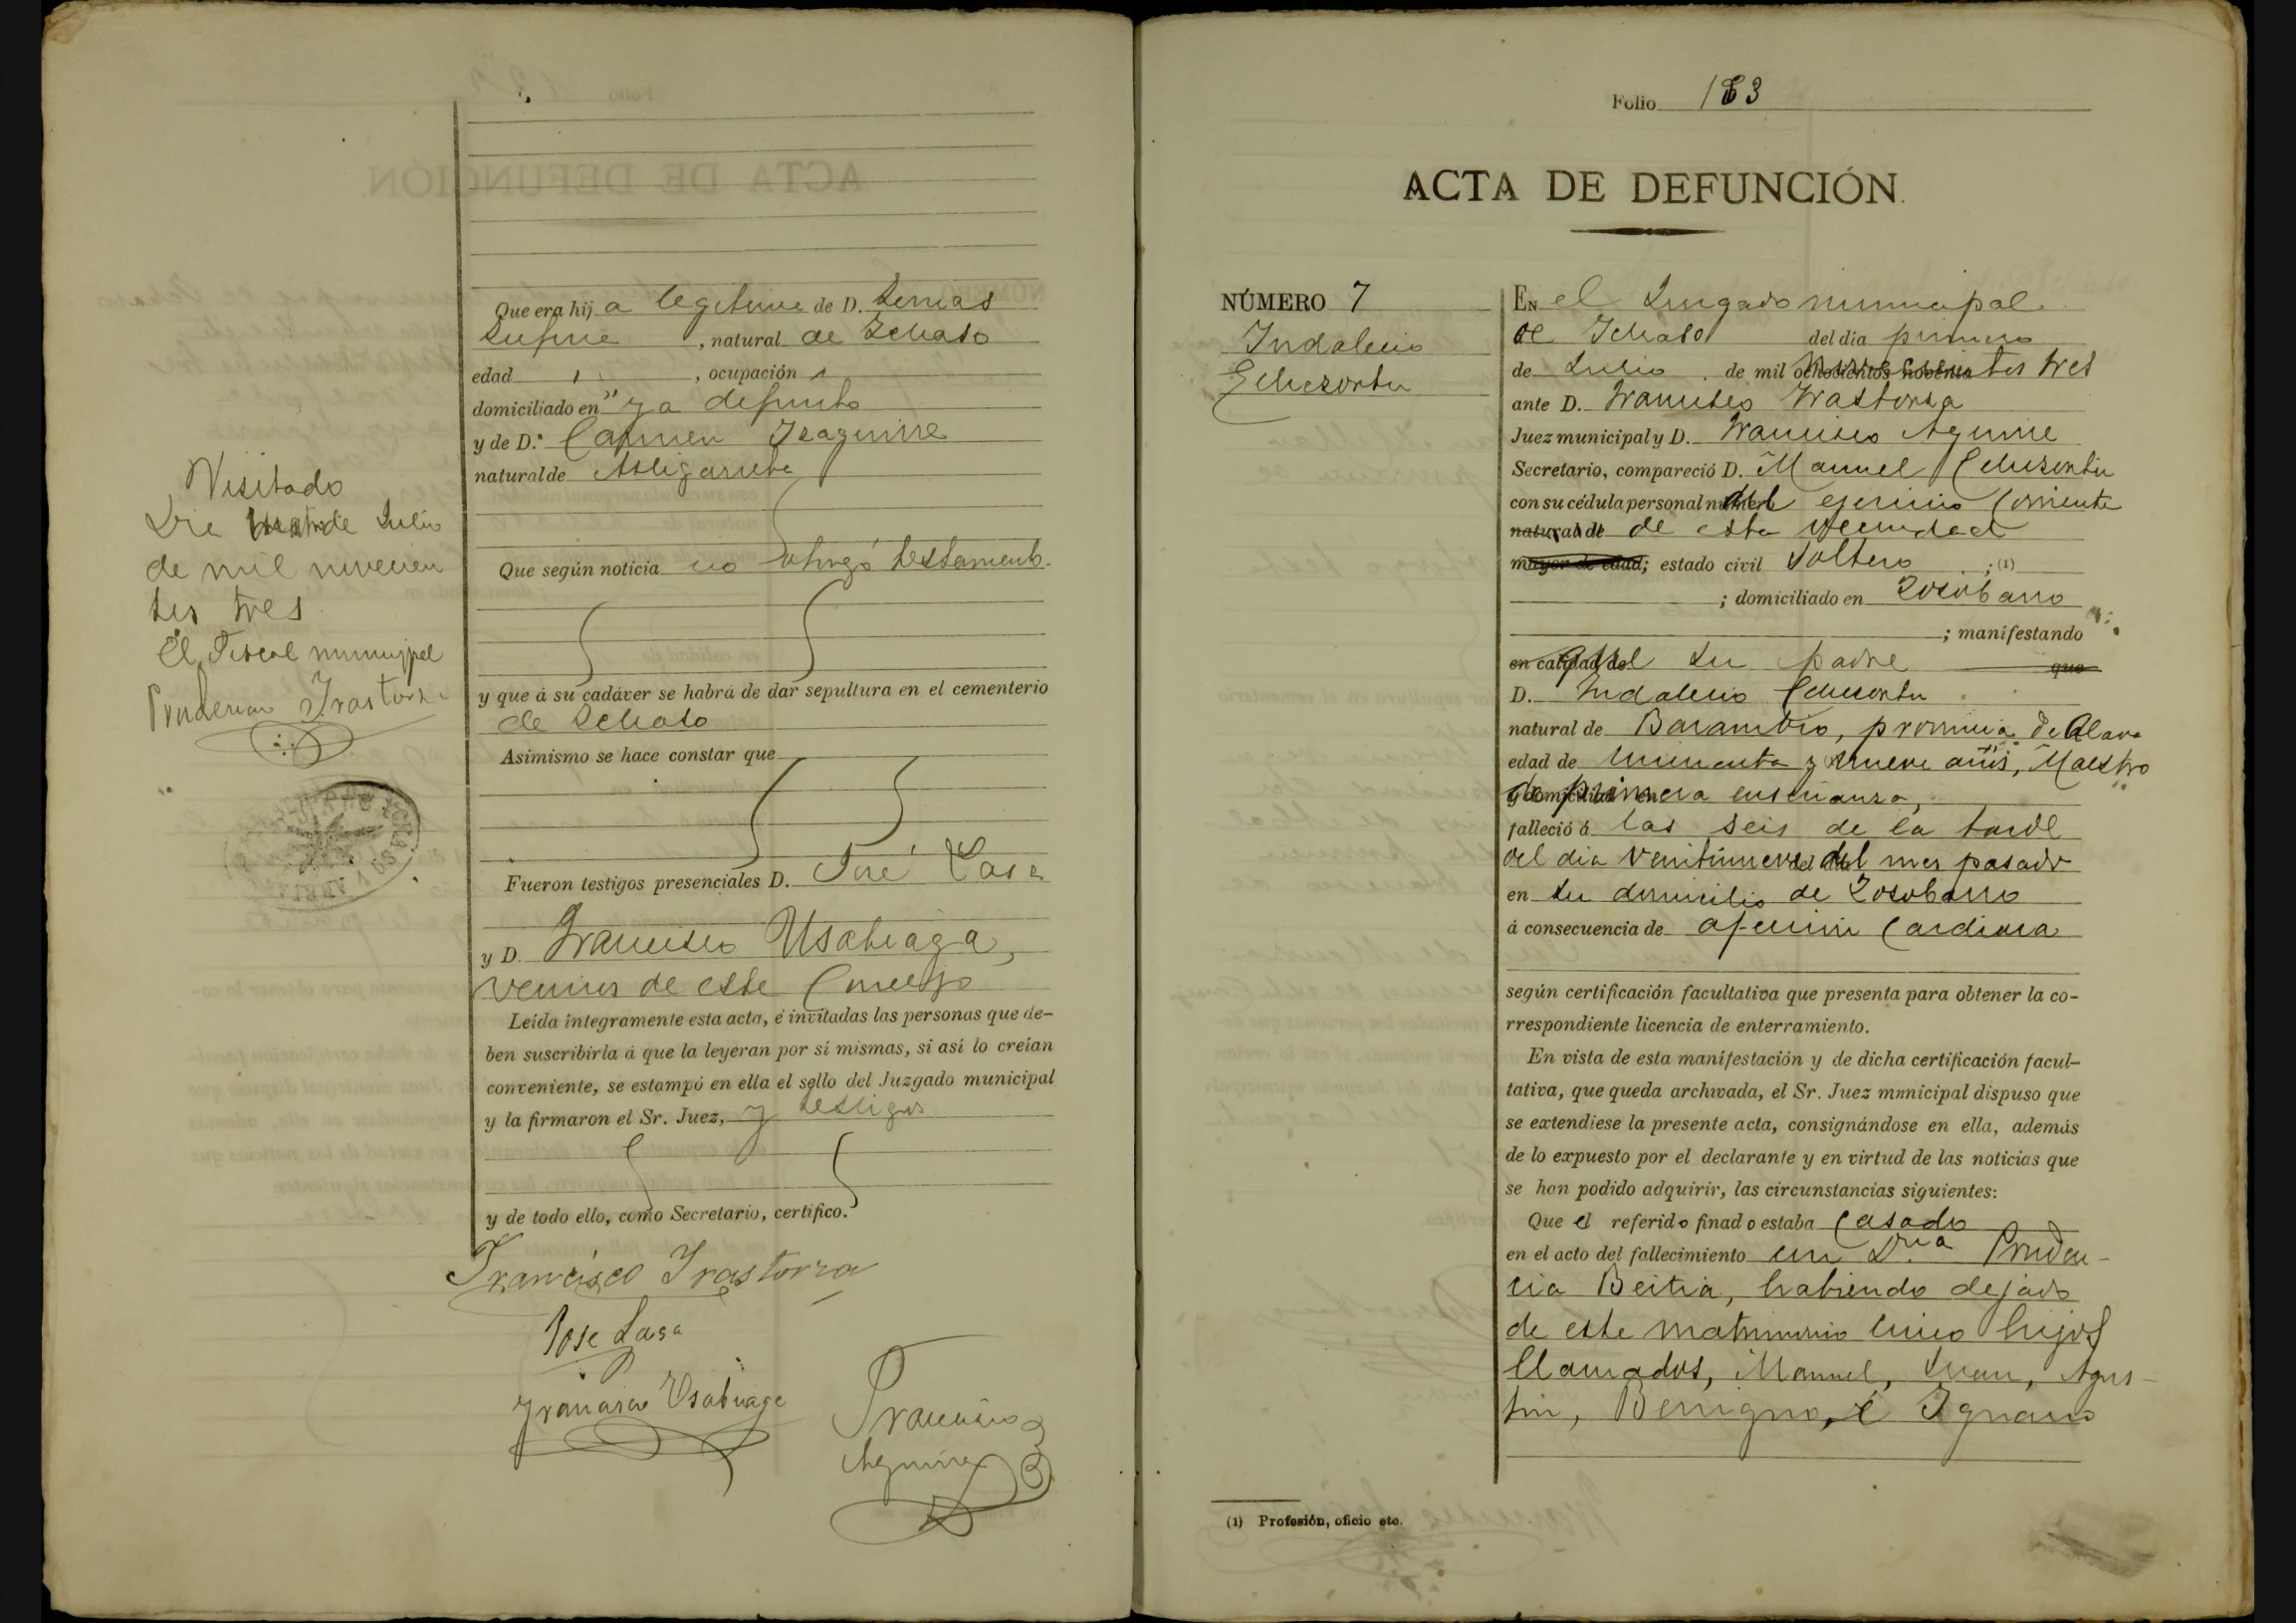 Que era hija legitima de D.
, natural de Ichaso
edad , ocupación
domiciliado en ya difunto
y de D.ª Carmen Izaguirre
natural de Astigarreta
Visitado
Dia de Julio
de mil novecien
tos tres
El Fiscal municipal
Prudencio Irastorza
Que según noticia no otorgó testamento
y que á su cadáver se habrá de dar sepultura en el cementerio
de Ichaso
Asimismo se hace constar que
Fueron testigos presenciales D. José Lasa
y D. Francisco Usabiaga,
vecinos de este Concejo
Leída íntegramente esta acta, é invitadas las personas que de-
ben suscribirla á que la leyeran por sí mismas, si así lo creían
conveniente, se estampó en ella el sello del Juzgado municipal
y la firmaron el Sr. Juez, y testigos
y de todo ello, como Secretario, certifico.
Francisco Irastorza
Jose Lasa
Francisco Usabiaga
Francisco
Aguirre
Folio 183
ACTA DE DEFUNCIÓN.
NÚMERO 7
Indalecio
Echezortu
EN el Juzgado municipal
de Ichaso del dia primero
de Julio de mil novecientos tres
ante D. Francisco Irastorza
Juez municipal y D. Francisco Aguirre
Secretario, compareció D. Manuel Echezortu
con su cédula personal del ejercicio corriente
natural de de esta vecindad
mayor de edad; estado civil Soltero ; (1)
; domiciliado en Zozobarro
; manifestando
en calidad de que su padre que
D. Indalecio Echezortu
natural de Barambio, provincia de Alava
edad de cincuenta y nueve años, Maestro
de primera enseñanza,
falleció á las seis de la tarde
del dia veintinueve del mes pasado
en su domicilio de Zozobarro
á consecuencia de afección cardiaca
según certificación facultativa que presenta para obtener la co-
rrespondiente licencia de enterramiento.
En vista de esta manifestación y de dicha certificación facul-
tativa, que queda archivada, el Sr. Juez municipal dispuso que
se extendiese la presente acta, consignándose en ella, además
de lo expuesto por el declarante y en virtud de las noticias que
se han podido adquirir, las circunstancias siguientes:
Que el referido finado estaba casado
en el acto del fallecimiento con D.ña Pruden-
cia Beitia, habiendo dejado
de este matrimonio cinco hijos
llamados, Manuel, Juan, Agus-
tin, Benigno, é Ignacio
(1) Profesión, oficio etc.